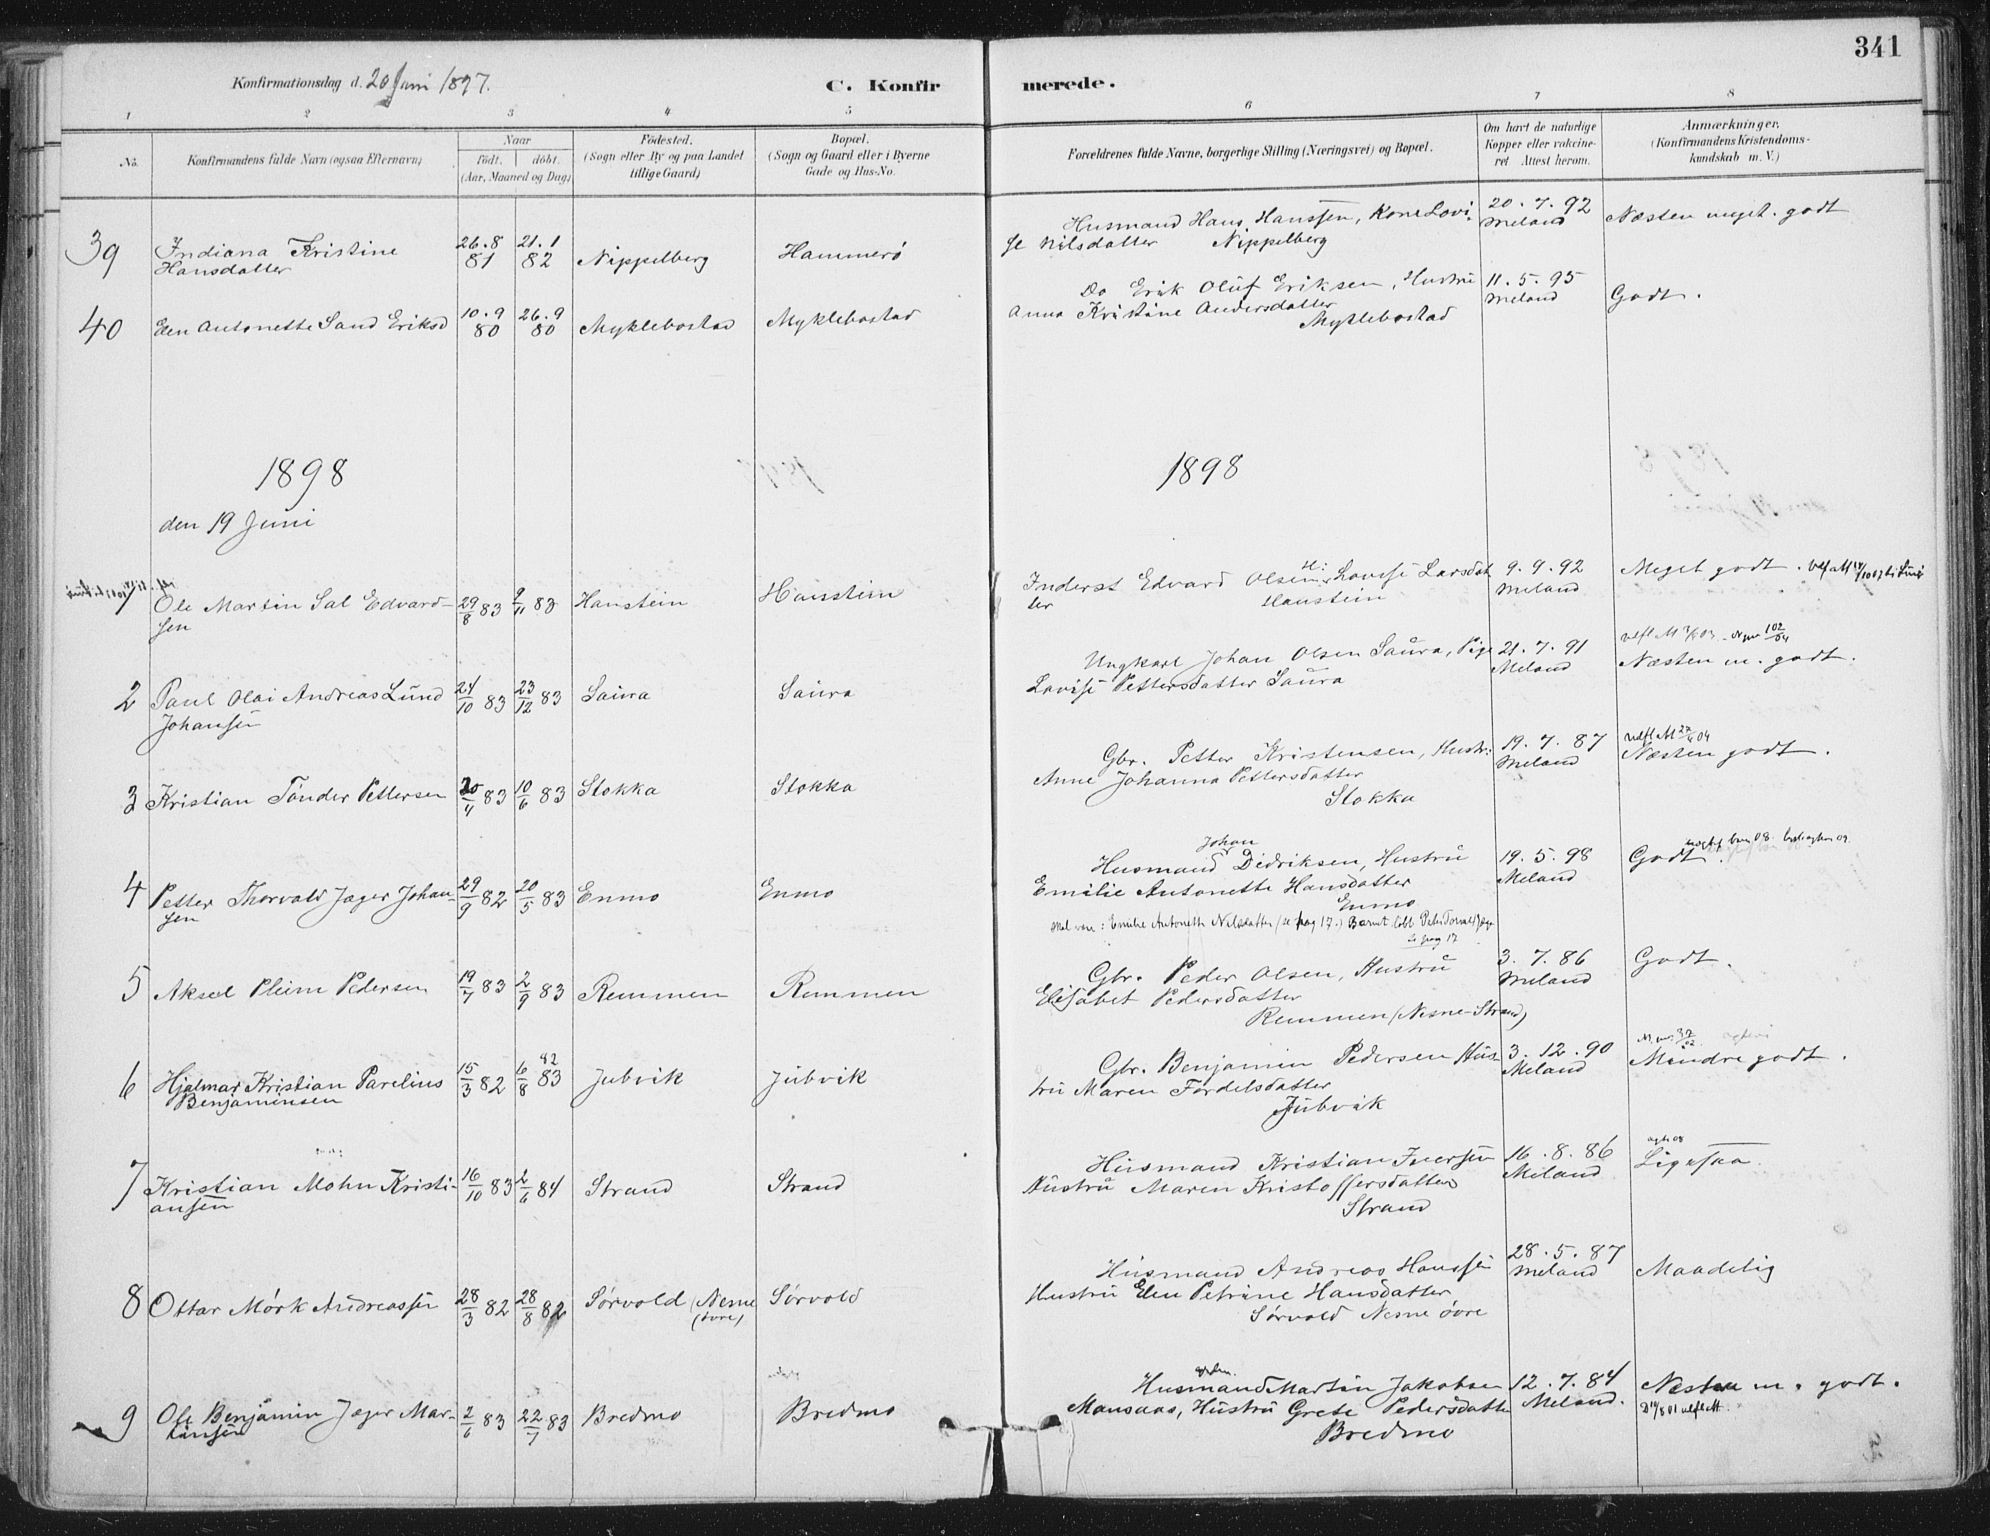 341
Konfirmationsdag d. 20 Juni 1897.
C. Konfirmerede.
1 2 3 4 5 6 7 8
No. Konfirmandens fulde Navn (ogsaa Efternavn) Naar født. døbt. (Aar, Maaned og Dag) Fødested. (Sogn eller By og paa Landet tillige Gaard) Bopæl. (Sogn og Gaard eller i Byerne Gade og Hus-No. Forældrenes fulde Navne, borgerlige Stilling (Næringsvei) og Bopæl. Om havt de naturlige Kopper eller vakcineret Attest herom. Anmærkninger. (Konfirmandens Kristendomskundskab m. V.)
39 Indiana Kristine Hansdatter 26.8 81 21.1 82 Nippelberg Hammerø
Husmand Hans Hanssen, Kone Lovise Nilsdatter Nippelberg 20.7.92 Meland Næsten meget godt
40 Elen Antonette Sand Eriksd 10.9 80 26.9 80 Myklebostad Myklebostad
Do Erik Oluf Eriksen, Hustru Anna Kristine Andersdatter Myklebostad 11.5.95 Meland Godt.
1898
1898
den 19 Juni
Ole Martin Sal Edvardsen 29/8 83 9/11 83 Hanstein Hanstein
Inderst Edvard Olsen H: Lovise Larsdatter Hanstein 9.9.92 Meland Meget godt.
2 Paul Olai Andreas Lund Johansen 24/10 83 23/12 83 Saura Saura
Ungkarl Johan Olsen Saura, Pige Lovise Pettersdatter Saura 21.7.91 Meland Næsten m. godt.
3 Kristian Tønder Pettersen 20/4 83 10/6 83 Stokka Stokka
Gbr. Petter Kristensen, Hustr: Anne Johanna Pettersdatter Stokka 19.7.87 Meland Næsten godt.
4 Petter Thorvald Jæger Johansen 29/9 82 20/5 83 Enmo Enmo
Husmand Johan Didriksen, Hustru Emilie Antonette Hansdatter Enmo 19.5.98 Meland Godt.
skal være: Emilie Antonette Nilsdatter (se pag 17.) Barnet døbt Peter Torvald Jæger
se pag 17
5 Aksel Pleim Pedersen 19/7 83 2/9 83 Remmen Remmen
Gbr. Peder Olsen, Hustru Elisabet Pedersdatter Remmen (Nesne-Strand) 3.7.86 Meland Godt.
6 Hjalmar Kristian Parelius Benjaminsen 15/3 82 6/8 83 82 Jubvik Jubvik
Gbr. Benjamin Pedersen Hustru Maren Fordelsdatter Jubvik 3.12.90 Meland Mindre godt.
7 Kristian Mohn Kristiansen 16/10 83 2/6 84 Strand Strand
Husmand Kristian Iversen Hustru Maren Kristoffersdatter Strand 16.8.86 Meland Ligesaa
8 Ottar Mørk Andreassen 28/3 82 28/8 82 Sørvold (Nesne øvre) Sørvold
Husmand Andreas Hanssen Hustru Elen Petrine Hansdatter Sørvold Nesne øvre 28.5.87 Meland Maadelig
9 Ole Benjamin Jæger Martinsen 2/6 83 22/7 83 Bredmo Bredmo
Husmand Martin Jakobsen Mansaas, Hustru Grete Pedersdatter Bredmo 12.7.84 Meland. Næsten m. godt.